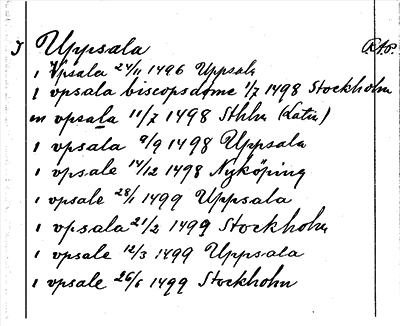 I Uppsala RAp.
i Vpsala 24/11 1496 Uppsala
i vpsala biscopsdøme 1/7 1498 Stockholm
in vpsala 11/7 1498 Sthlm (Latin)
i vpsala 9/9 1498 Uppsala
i vpsale 14/12 1498 Nyköping
i vpsale 28/1 1499 Uppsala
i vpsala 21/2 1499 Stockholm
i vpsale 12/3 1499 Uppsala
i vpsale 26/6 1499 Stockholm